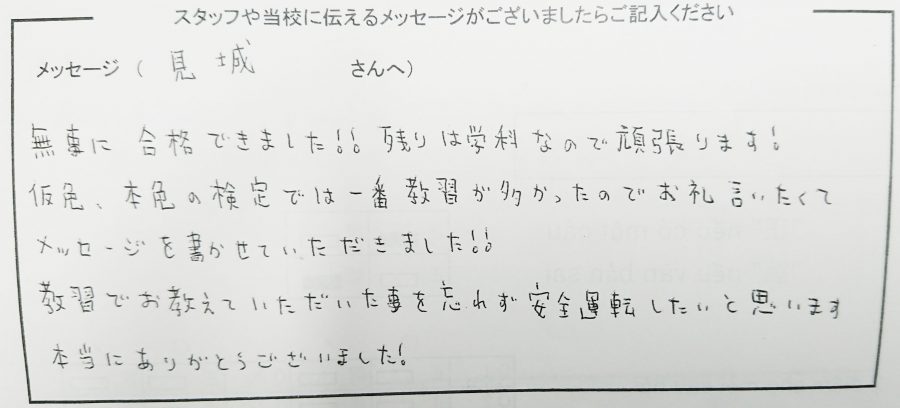 スタッフや当校に伝えるメッセージがございましたらご記入ください
メッセージ（ 見城 さんへ）
無事に合格できました!! 残りは学科なので頑張ります!
仮免、本免の検定では一番教習が多かったのでお礼言いたくて
メッセージを書かせていただきました!!
教習でお教えていただいた事を忘れず安全運転したいと思います
本当にありがとうございました!